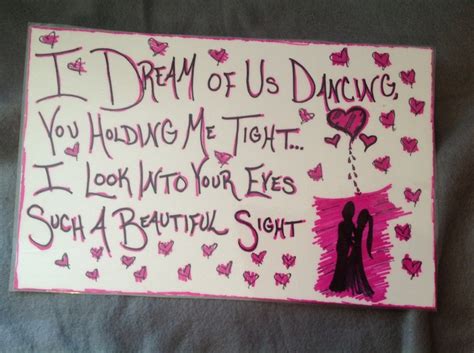 I Dream of Us Dancing,
You Holding Me Tight...
I Look Into Your Eyes
Such A Beautiful Sight